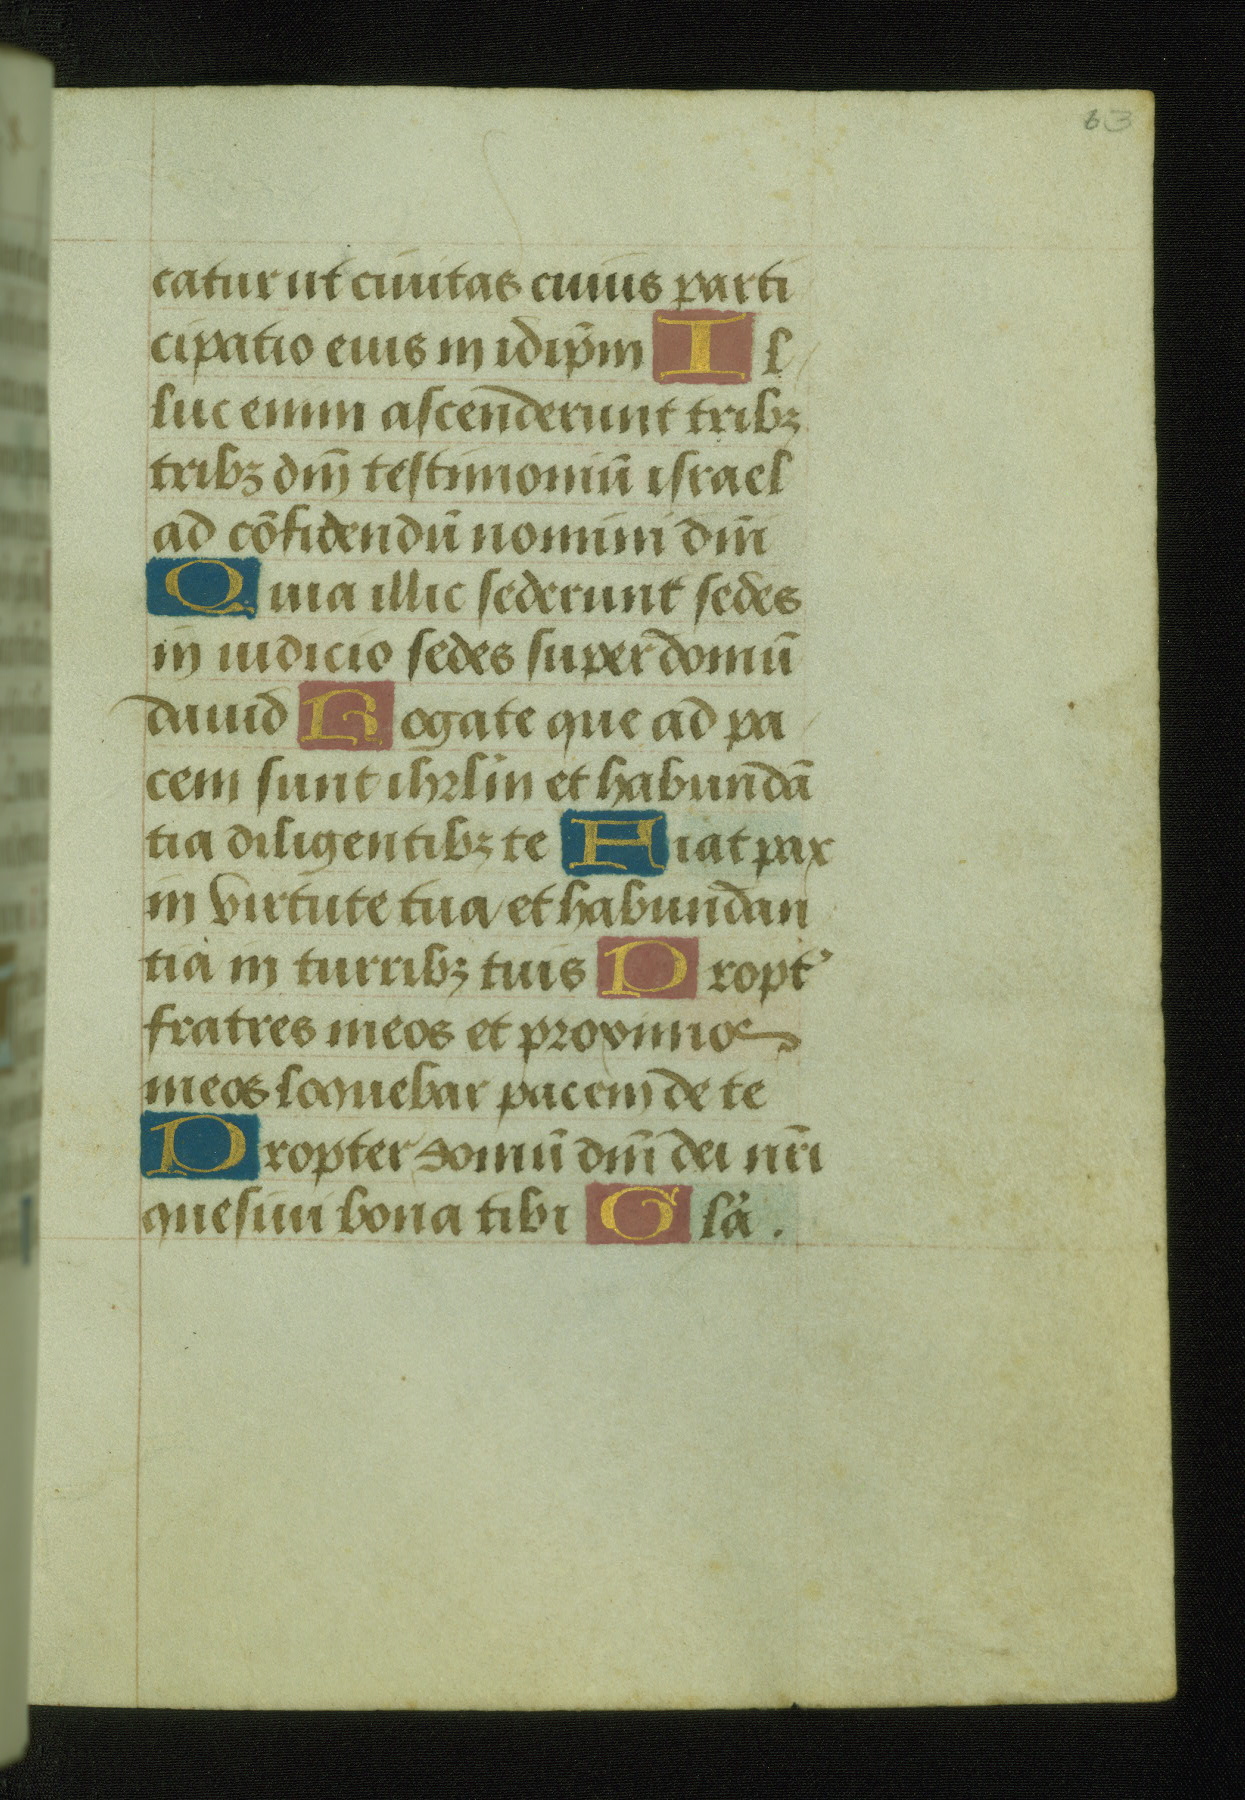 63
catur ut ciuitas cuius parti
cipatio eius in idip̄m Il
luc enim ascenderunt tribꝫ
tribꝫ dn̄i testimoniū israel
ad cōfidendū nomini dn̄i
Quia illic sederunt sedes
in iudicio sedes super domū
dauid Rogate que ad pa
cem sunt ihrl̄m et habundā
tia diligentibꝫ te Fiat pax
in virtute tua et habundan
tia in turribꝫ tuis Propt᾿
fratres meos et proximos
meos loquebar pacem de te
Propter domū dn̄i dei nr̄i
quesiui bona tibi Gla᾿.